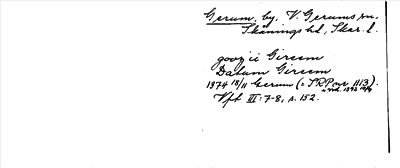 Gerum, by, V. Gerums sn,
Skånings hd, Skar. l.
goozii Gireem
Datum Gireem
1374 18/11 Gerum (SRP nr 1113).
Vft III: 7-8, s. 152.